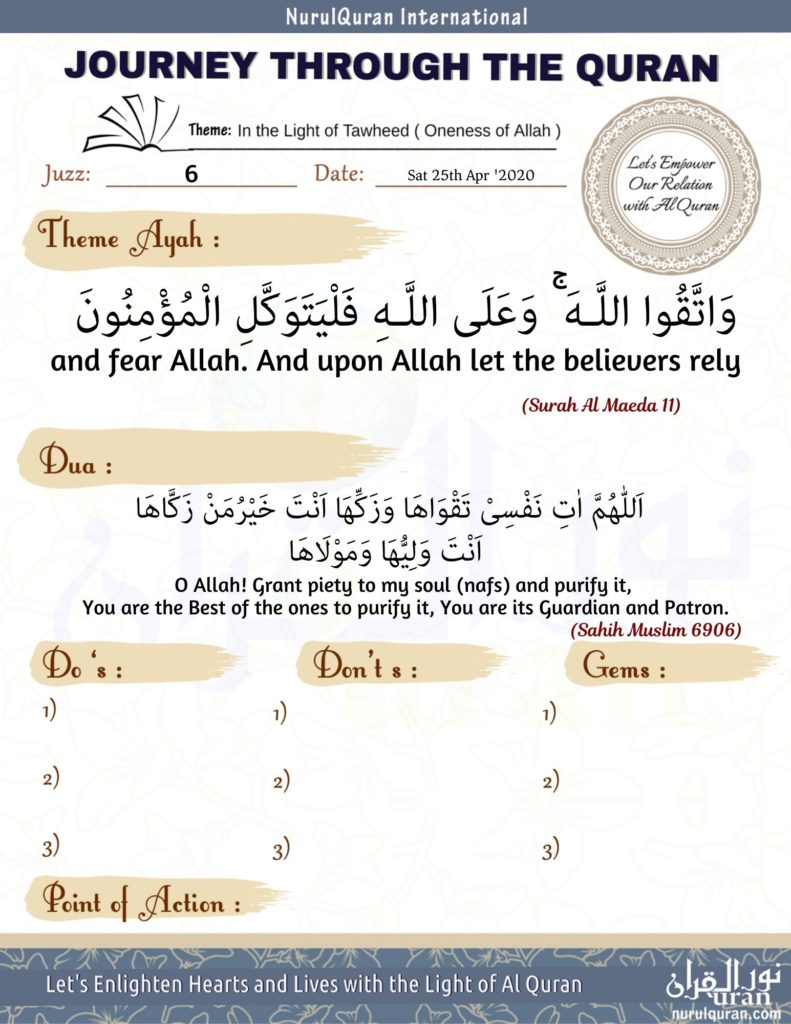 NurulQuran International
JOURNEY THROUGH THE QURAN
Theme: In the Light of Tawheed ( Oneness of Allah )
Let's Empower
Our Relation
with Al Quran
Juzz: 6 Date: Sat 25th Apr '2020
Theme Ayah :
وَاتَّقُوا اللَّـهَ ۚ وَعَلَى اللَّـهِ فَلْيَتَوَكَّلِ الْمُؤْمِنُونَ
and fear Allah. And upon Allah let the believers rely
(Surah Al Maeda 11)
Dua :
اَللّٰهُمَّ اٰتِ نَفْسِىْ تَقْوَاهَا وَزَكِّهَا اَنْتَ خَيْرُمَنْ زَكَّاهَا
اَنْتَ وَلِيُّهَا وَمَوْلَاهَا
O Allah! Grant piety to my soul (nafs) and purify it,
You are the Best of the ones to purify it, You are its Guardian and Patron.
(Sahih Muslim 6906)
Do 's : Don't s : Gems :
1) 1) 1)
2) 2) 2)
3) 3) 3)
Point of Action :
Let's Enlighten Hearts and Lives with the Light of Al Quran
نور القرآن
uran
nurulquran.com